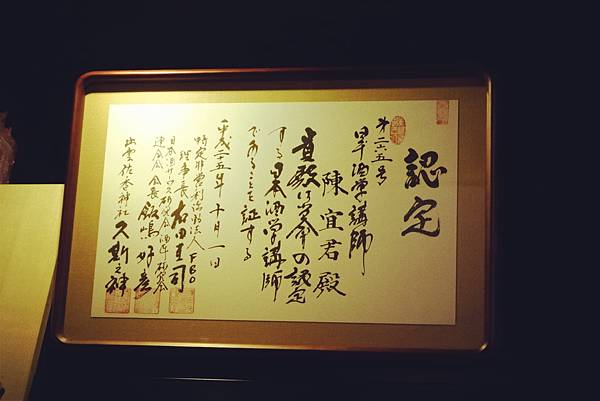 認定
第二六五号
日本酒学講師
陳宜君殿
貴殿は当会の認定
する日本酒学講師
であることを証する
平成二十五年十月一日
特定非営利活動法人FBO
理事長 右田圭司
日本酒サービス研究会・酒匠研究会
連合会 会長 飯嶋
出雲佐香神社 久斯之神